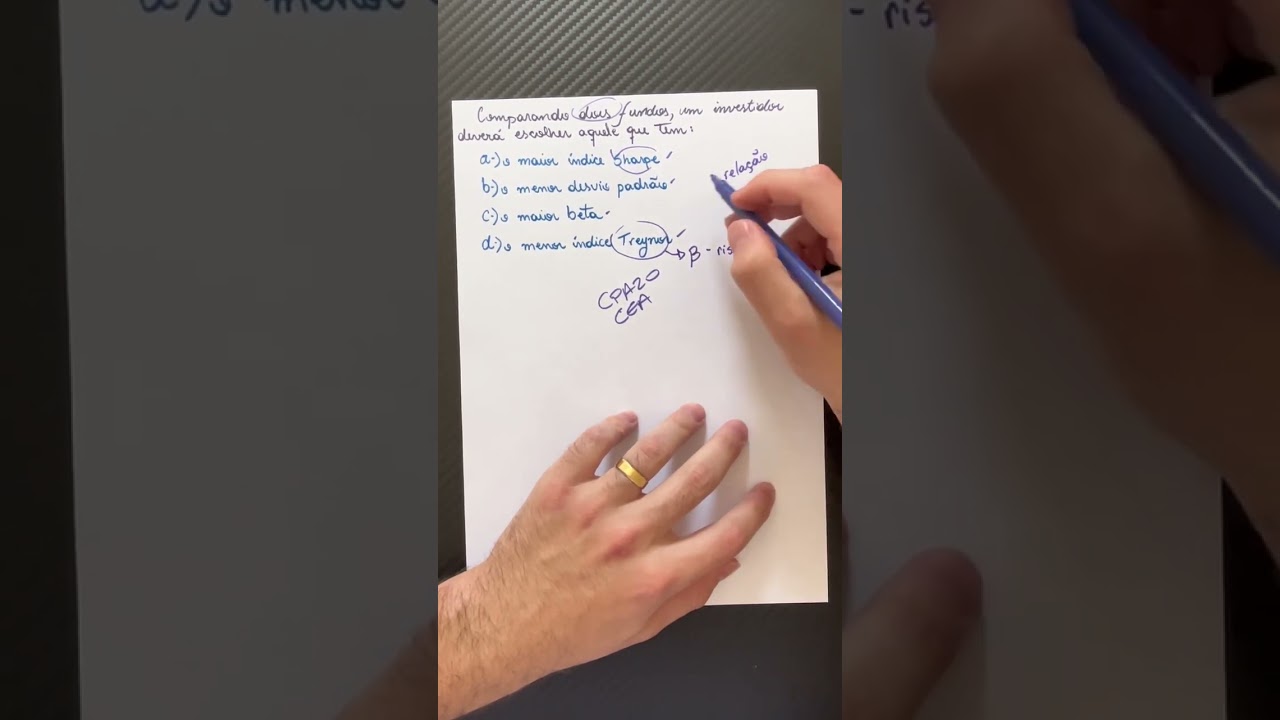 Comparando dois fundos, um investidor
deverá escolher aquele que tem:
a-) o maior índice Sharpe
b-) o menor desvio padrão
c-) o maior beta
d-) o menor índice Treynor
relação
β - ris
CPA20
CEA
- ris